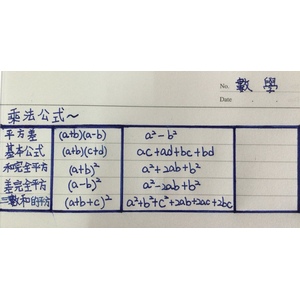 No. 數學
Date
乘法公式~
平方差 (a+b)(a-b) a²-b²
基本公式 (a+b)(c+d) ac+ad+bc+bd
和完全平方 (a+b)² a²+2ab+b²
差完全平方 (a-b)² a²-2ab+b²
三數和的平方 (a+b+c)² a²+b²+c²+2ab+2ac+2bc